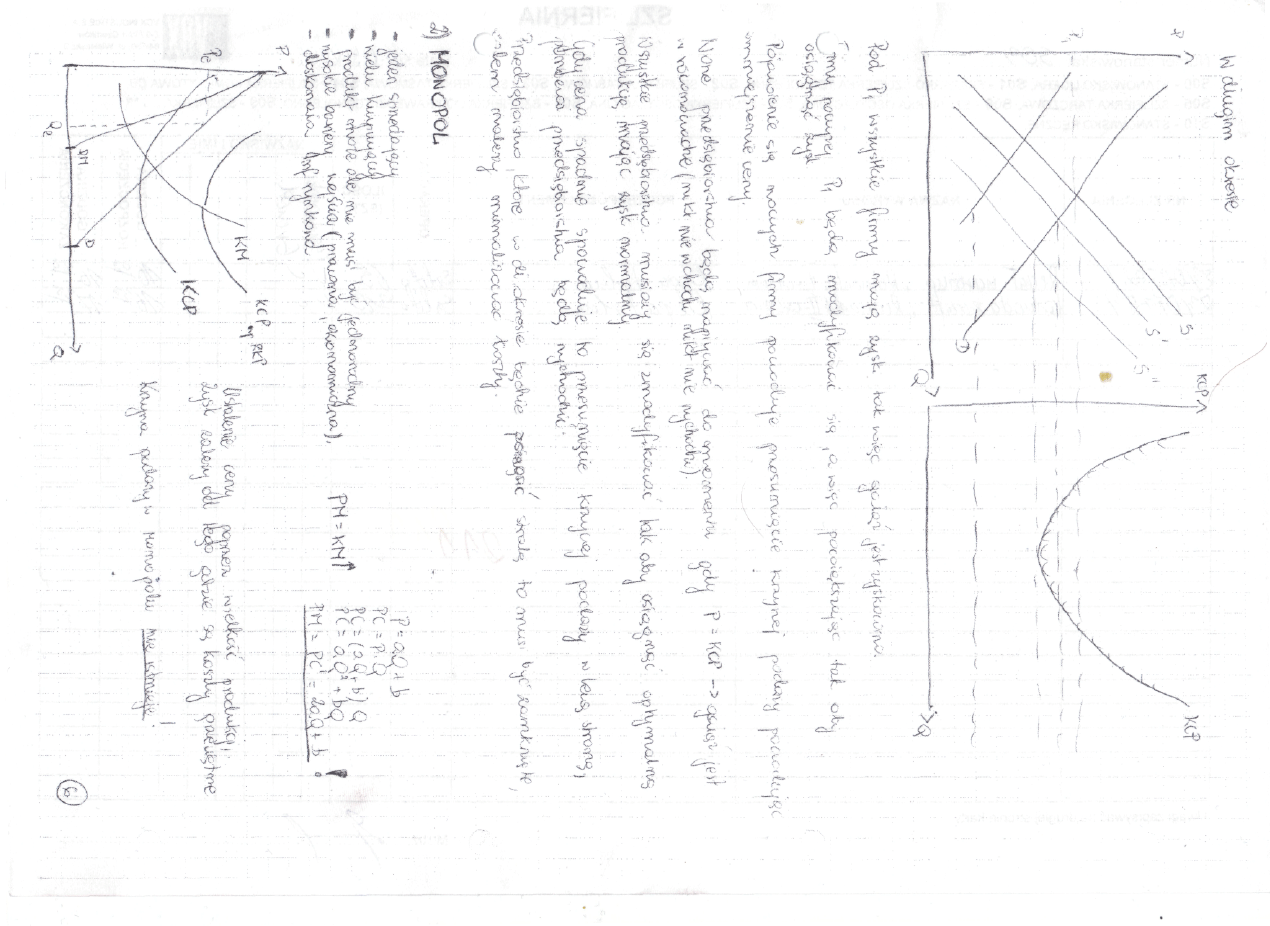 W długim okresie
P
P1
S
S'
S''
D
Q
KCP
KCP
Q
Pod P1 wszystkie firmy mają zysk tak więc gałąź jest zyskowna.
Firmy powyżej P1 będą modyfikować się, a więc powiększając tak aby
osiągnąć zysk
Pojawienie się nowych firmy powoduje przesunięcie krzywej podaży powodując
zmniejszenie ceny.
Nowe przedsiębiorstwa będą napływać do momentu gdy P = KCP -> gałąź jest
w równowadze (nikt nie wchodzi nikt nie wychodzi).
Wszystkie przedsiębiorstwa muszą się zmodyfikować tak aby osiągnąć optymalną
produkcję mając zysk normalny
Gdy cena spadnie spowoduje to przesunięcie krzywej podaży w lewą stronę,
ponieważ przedsiębiorstwa będą wychodzić.
Przedsiębiorstwo, które w dł. okresie będzie osiągać stratę to musi być zamknięte,
należy minimalizować koszty.
2) MONOPOL
- jeden sprzedający
- wielu kupujących
- produkt może ale nie musi być jednorodny
- wysokie bariery wejścia (prawna, ekonomiczna),
- doskonała inf. rynkowa
P = aQ + b
PC = P · Q
PC = (aQ + b) Q
PC = aQ² + bQ
PM = PC' = 2aQ + b !
PM = KM
P
Pe
Qe
PM
D
Q
KM
KCP
KCP
Ustalenie ceny poprzez wielkość produkcji
Zysk zależy od tego gdzie są koszty przeciętne
Krzywa podaży w monopolu nie istnieje!
6